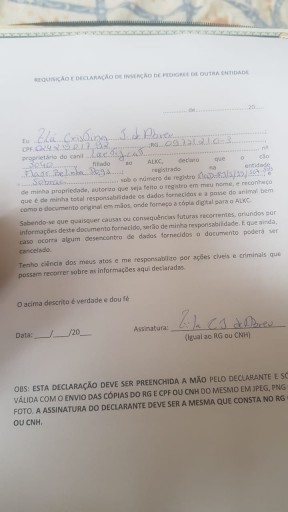 REQUISIÇÃO E DECLARAÇÃO DE INSERÇÃO DE PEDIGREE DE OUTRA ENTIDADE
de 20
Eu
CPF RG nº
proprietário do canil
filiado ao ALKC, declaro que o cão
registrado na entidade
sob o número de registro
de minha propriedade, autorizo que seja feito o registro em meu nome, e reconheço
que é de minha total responsabilidade os dados fornecidos e a posse do animal bem
como o documento original em mãos, onde forneço a cópia digital para o ALKC.
Sabendo-se que quaisquer causas ou consequências futuras recorrentes, oriundos por
informações deste documento fornecido, serão de minha responsabilidade. E que ainda,
caso ocorra algum desencontro de dados fornecidos o documento poderá ser
cancelado.
Tenho ciência dos meus atos e me responsabilizo por ações cíveis e criminais que
possam recorrer sobre as informações aqui declaradas.
O acima descrito é verdade e dou fé
Data: ___/___/20___ Assinatura:
(Igual ao RG ou CNH)
OBS: ESTA DECLARAÇÃO DEVE SER PREENCHIDA A MÃO PELO DECLARANTE E SÓ
VÁLIDA COM O ENVIO DAS CÓPIAS DO RG E CPF OU CNH DO MESMO EM JPEG, PNG
FOTO. A ASSINATURA DO DECLARANTE DEVE SER A MESMA QUE CONSTA NO RG
OU CNH.